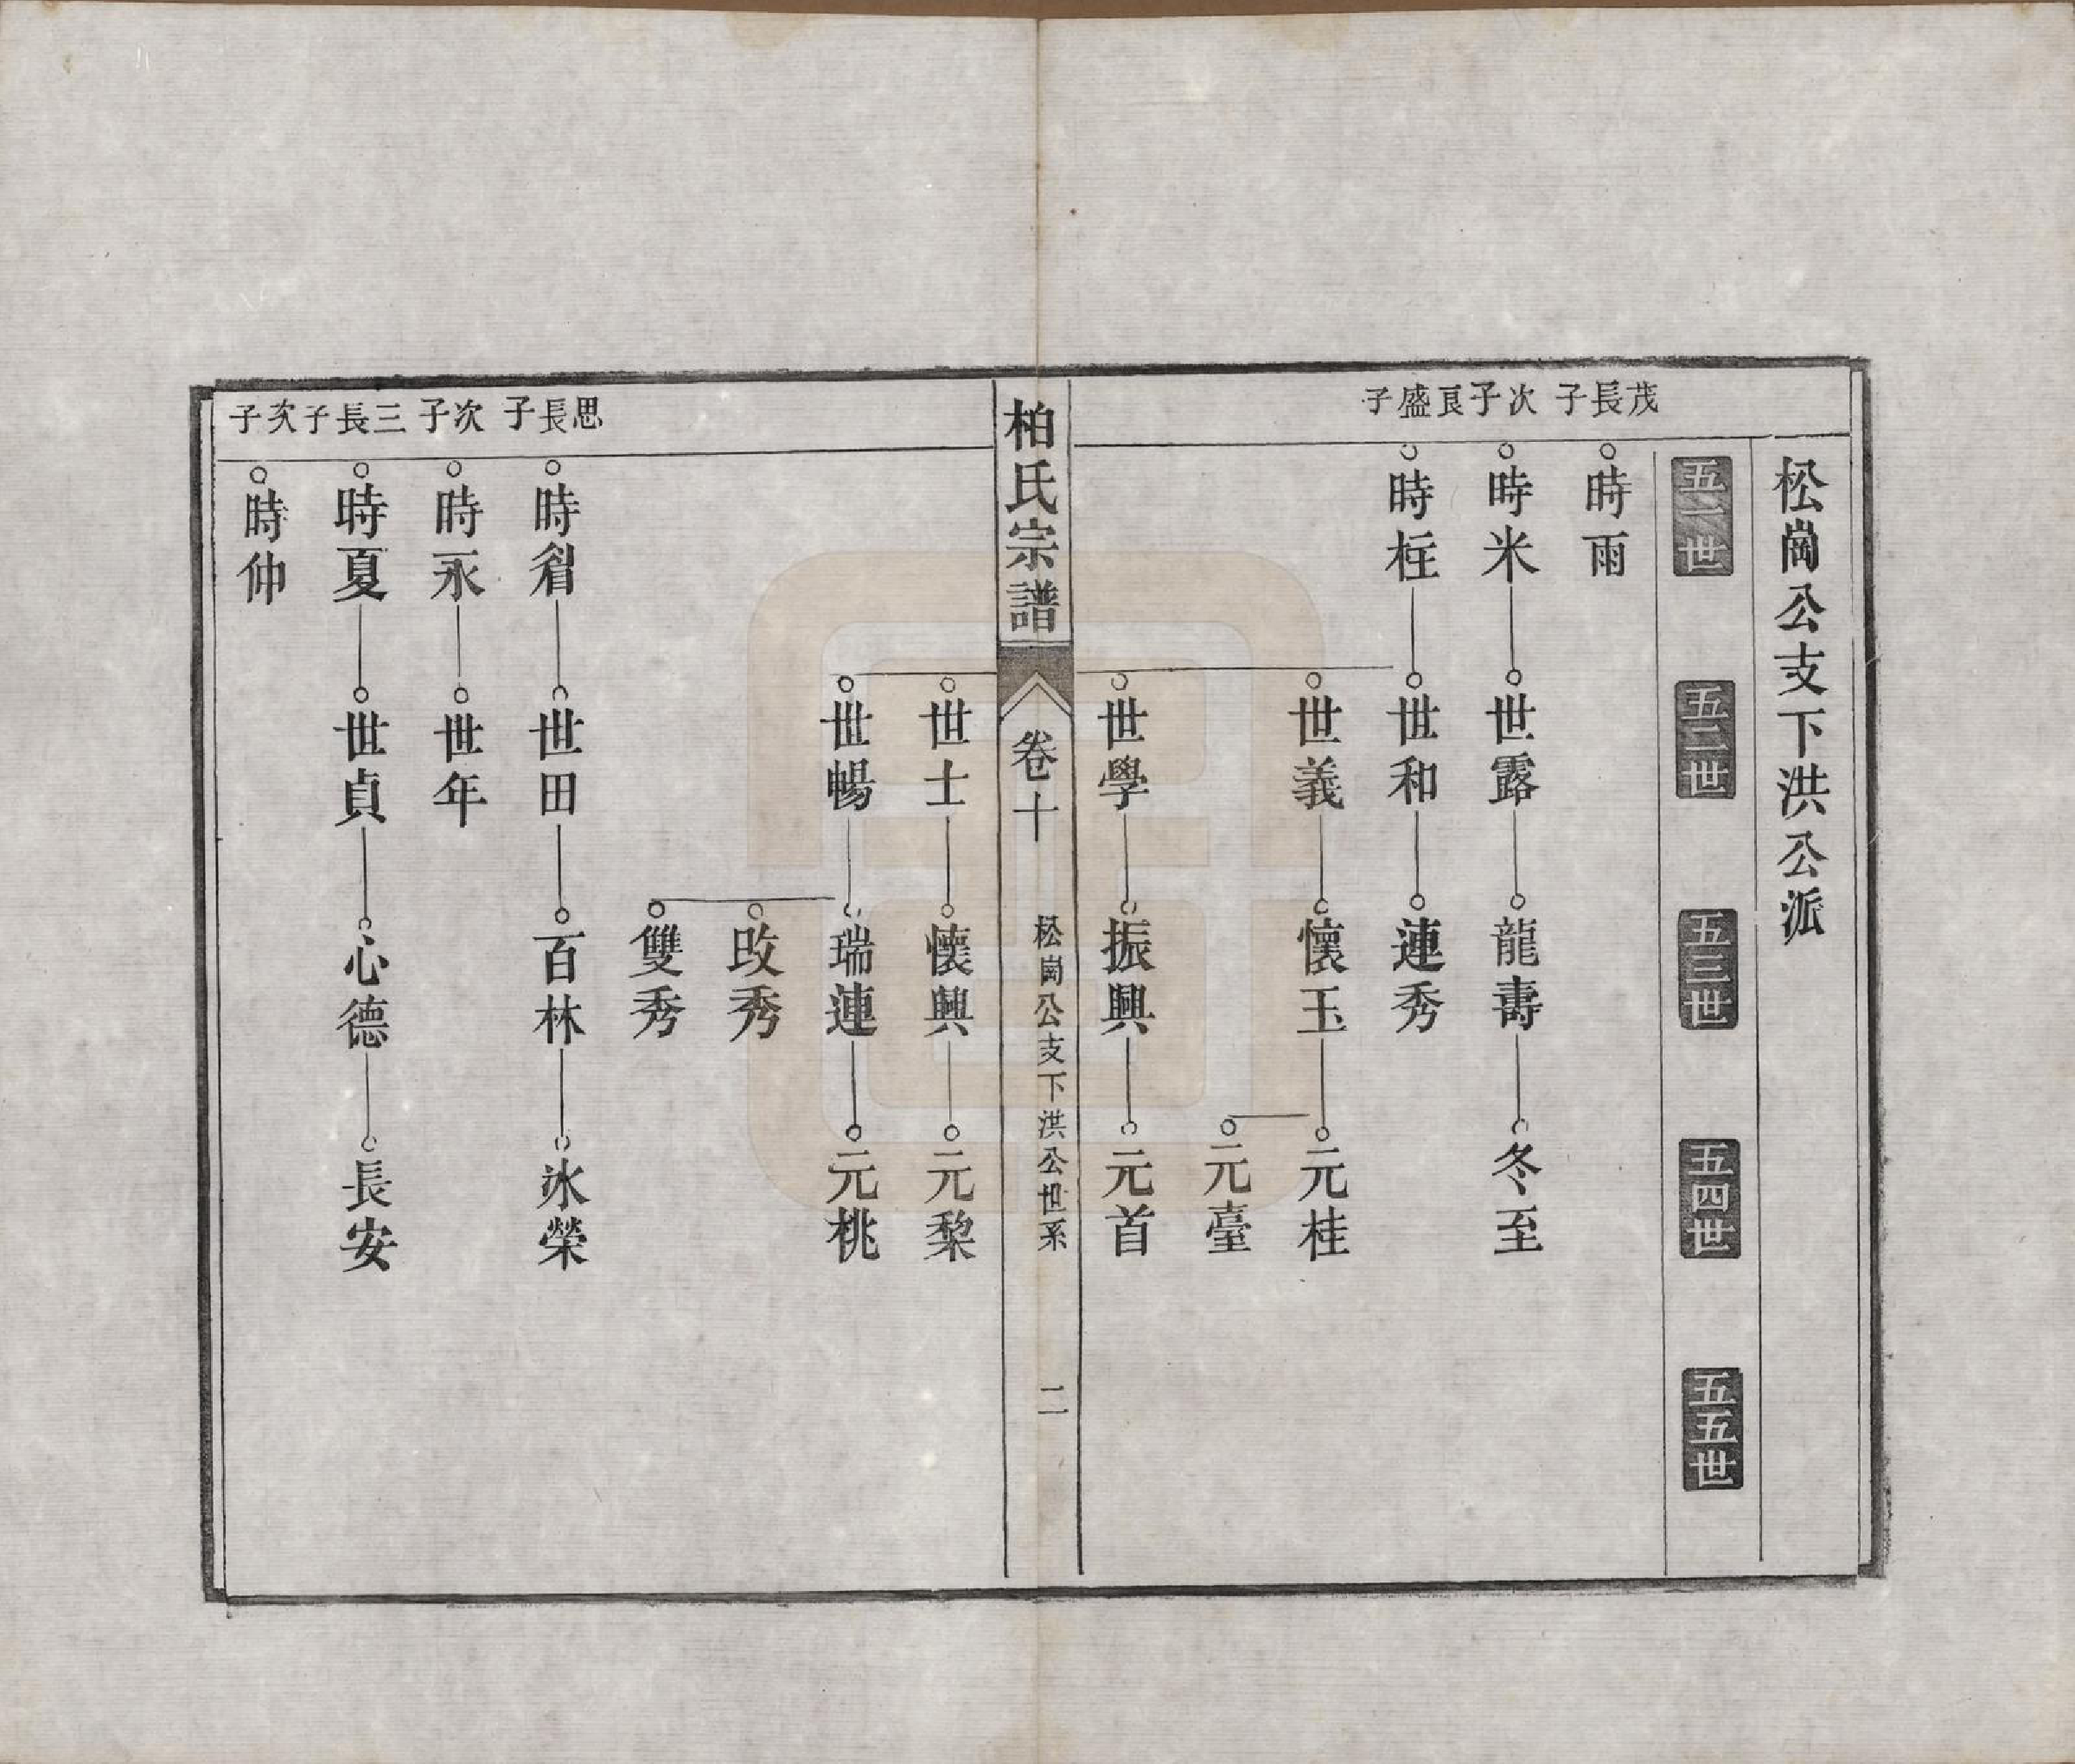 松崗公支下洪公派
五一世
五二世
五三世
五四世
五五世
茂長子
時雨
次子
時米
世露
龍壽
冬至
良盛子
時枉
世和
連秀
世義
懷玉
元桂
元臺
世學
振興
元首
柏氏宗譜
卷十
松崗公支下洪公世系
二
世士
懷興
元棃
世暢
瑞連
元桃
改秀
雙秀
思長子
時
世田
百林
氷榮
次子
時永
世年
三長子
時夏
世貞
心德
長安
次子
時仲